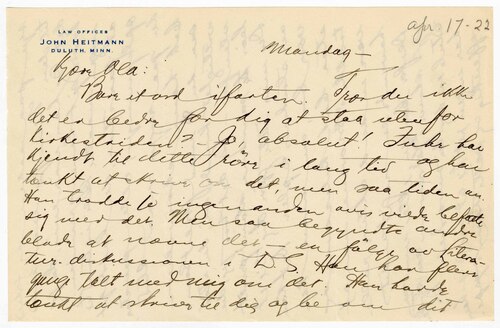 LAW OFFICES
JOHN HEITMANN
DULUTH, MINN.
apr 17-22
Mandag —
Kjære Ola:
Bare et ord i farten. Tror du ikke
det er bedre for dig at staa utenfor
kirkestriden? – Jo, absolut! Fuhr har
kjendt til dette røre i lang tid og har
tænkt at skrive om det, men saa tiden an.
Han trodde ingen anden avis vilde befatte
sig med det. Men saa begyndte andre
blade at nævne det — en følge av Littera-
tur diskussionen i D. S. Han har flere
gange talt med mig om det. Han hadde
tænkt at skrive til dig og be om dit